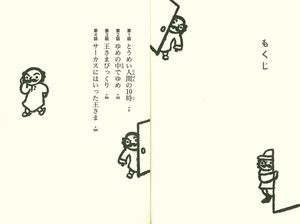 もくじ
第1話 とうめい人間の10時
第2話 ゆめの中でゆめ
第3話 王さまびっくり
第4話 サーカスにはいった王さま